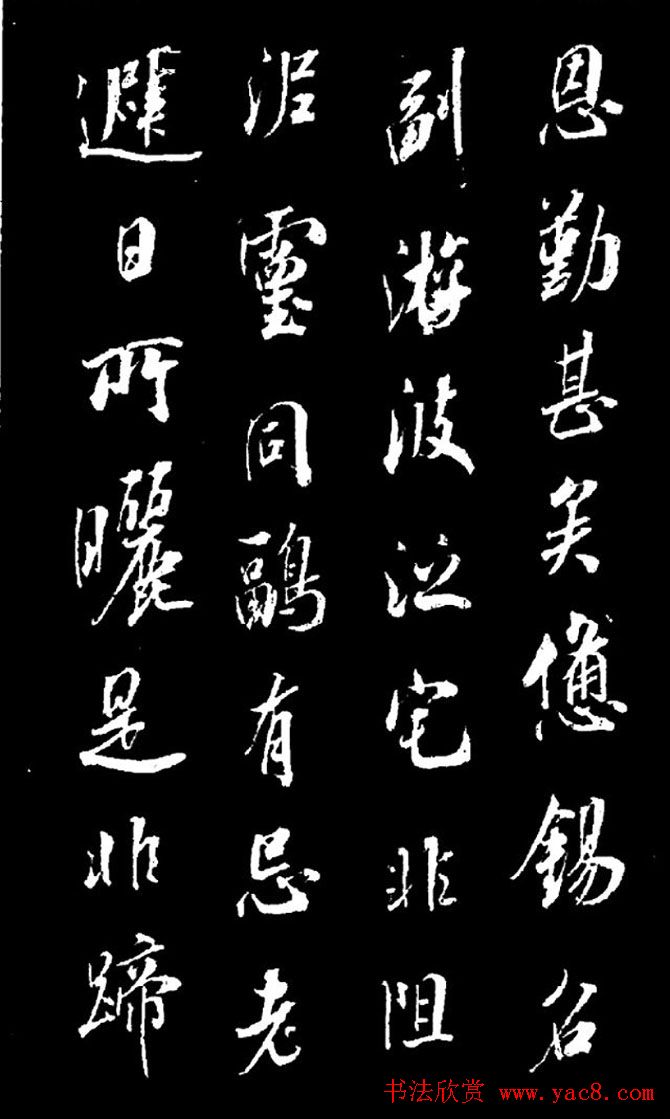 恩勤甚矣憊錫名
副游波泛宅非阻
泥靈同鷗有忌老
避日所曬是非蹄
书法欣赏 www.yac8.com